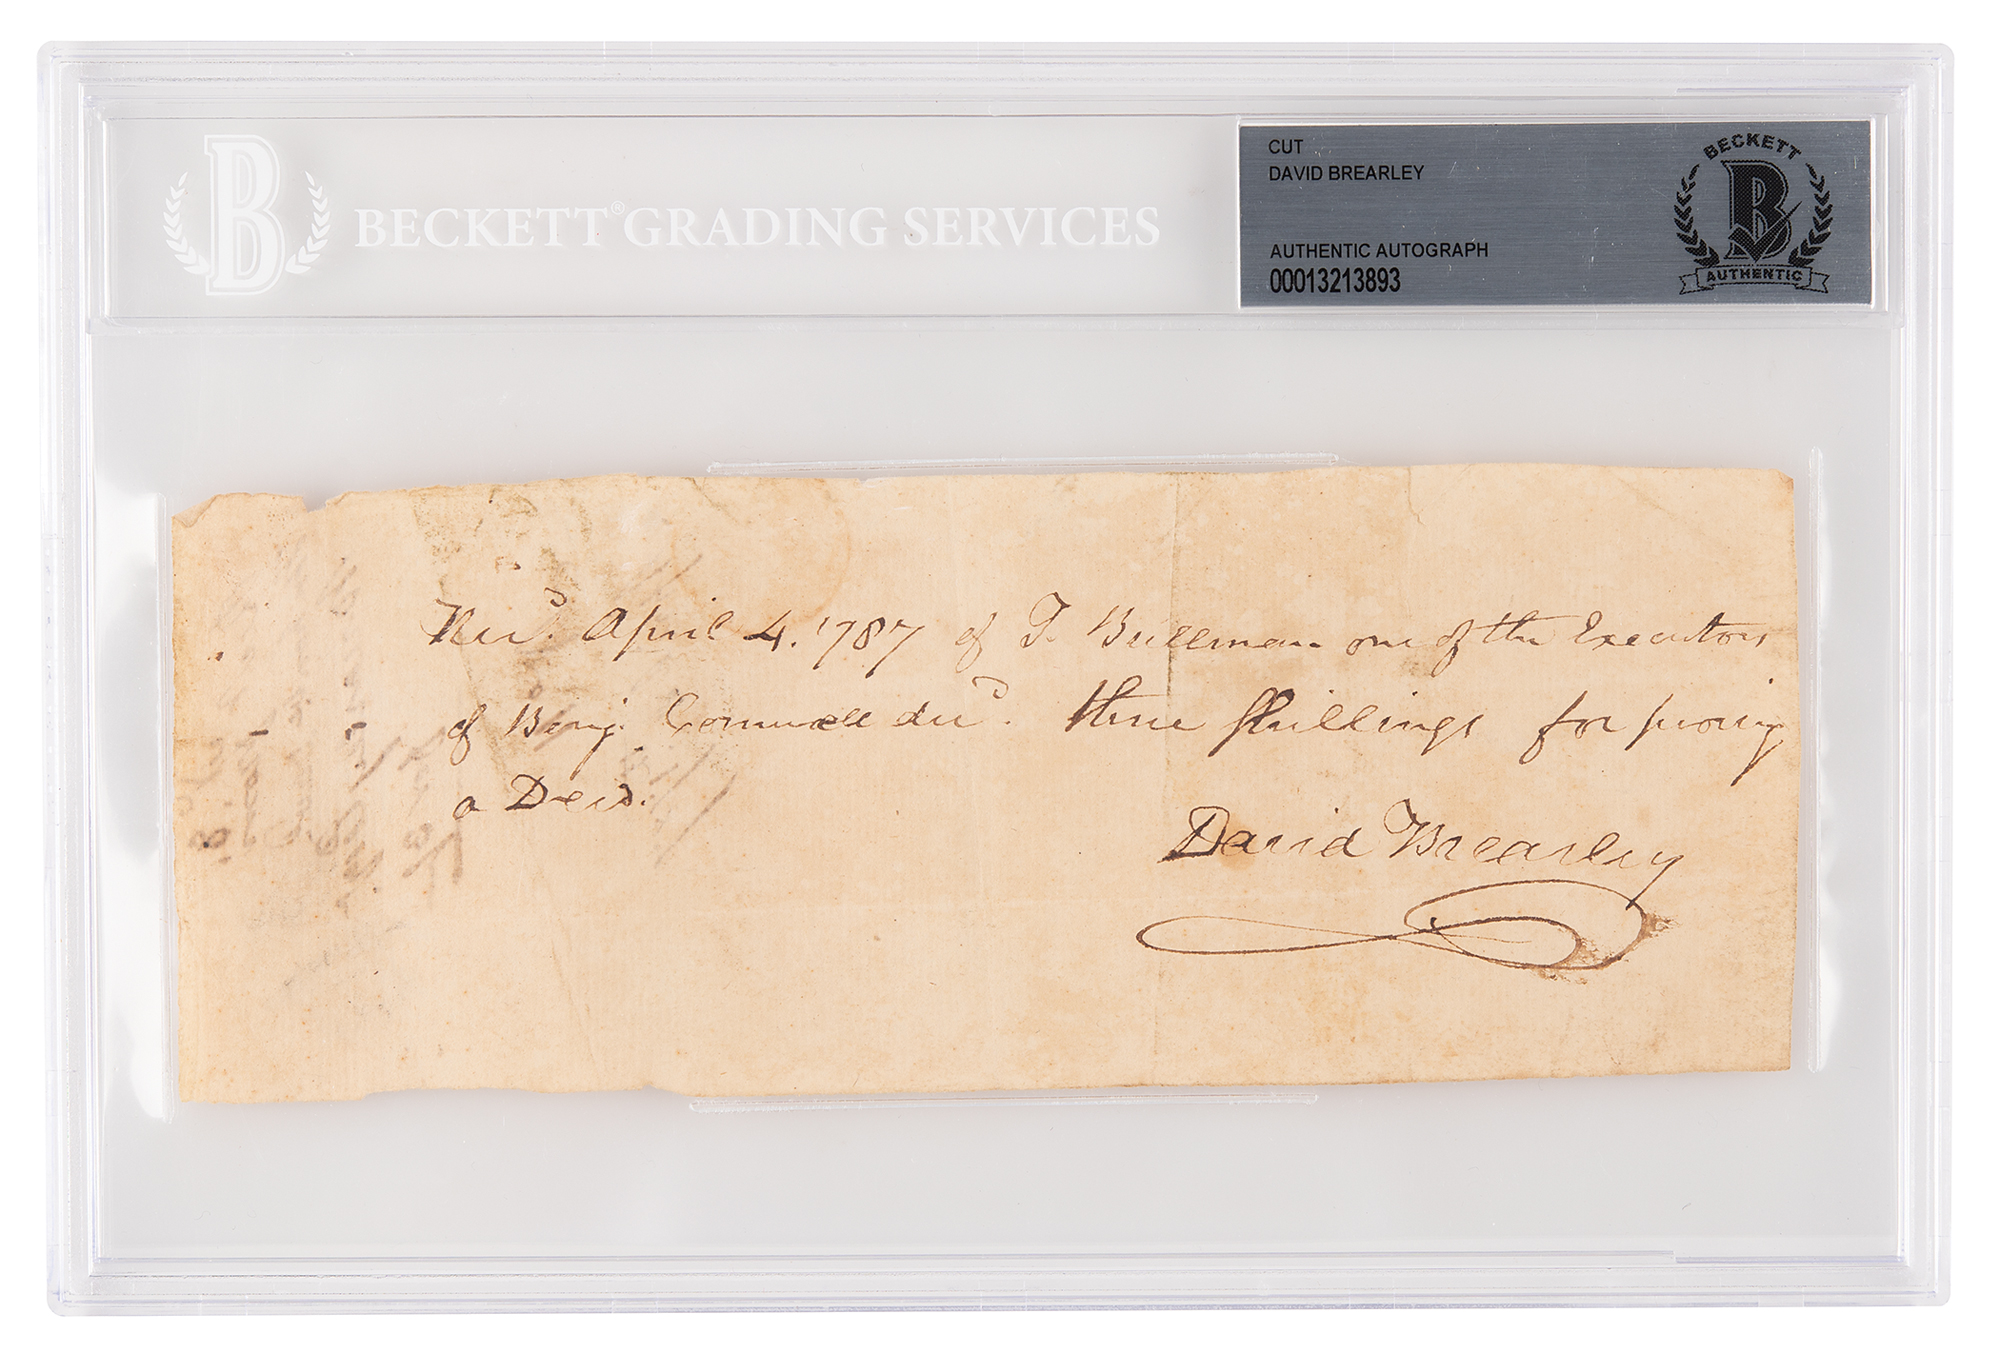 BECKETT® GRADING SERVICES
CUT
DAVID BREARLEY
AUTHENTIC AUTOGRAPH
00013213893
BECKETT
B
AUTHENTIC
B
Recd. April 4. 1787 of T. Bullman one of the Executors
of Benj. Cornwell decd. three Shillings for proving
a Deed.
David Brearley